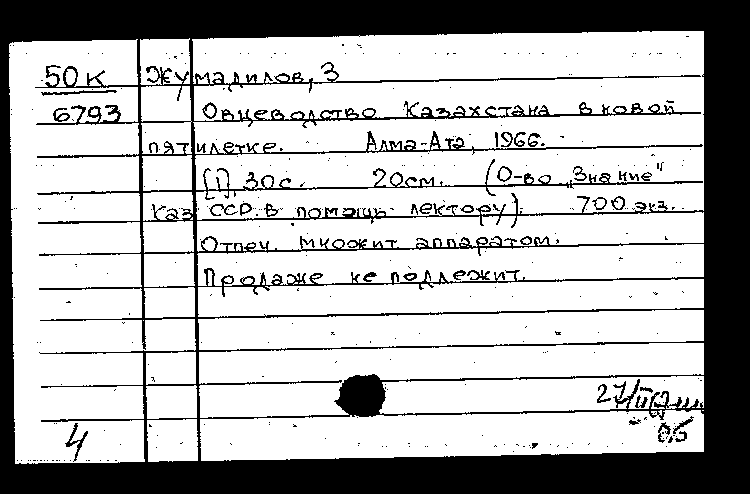 50к Жумадилов, З
6793 Овцеводство Казахстана в новой
пятилетке. Алма-Ата, 1966.
[1], 30с. 20см. (О-во „Знание"
Каз ССР. В помощь лектору). 700 экз.
Отпеч. множит. аппаратом.
Продаже не подлежит.
27/II
4 об